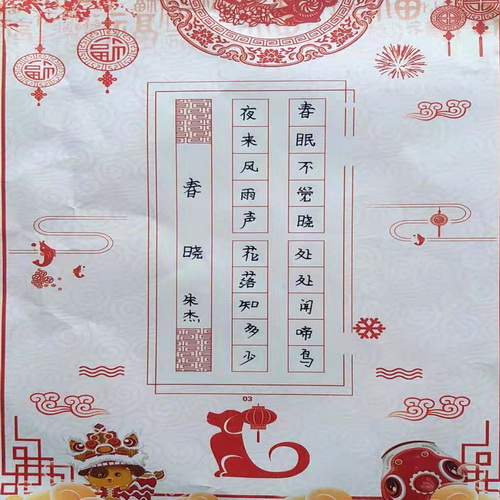 春眠不觉晓
处处闻啼鸟
夜来风雨声
花落知多少
春晓
朱杰
03